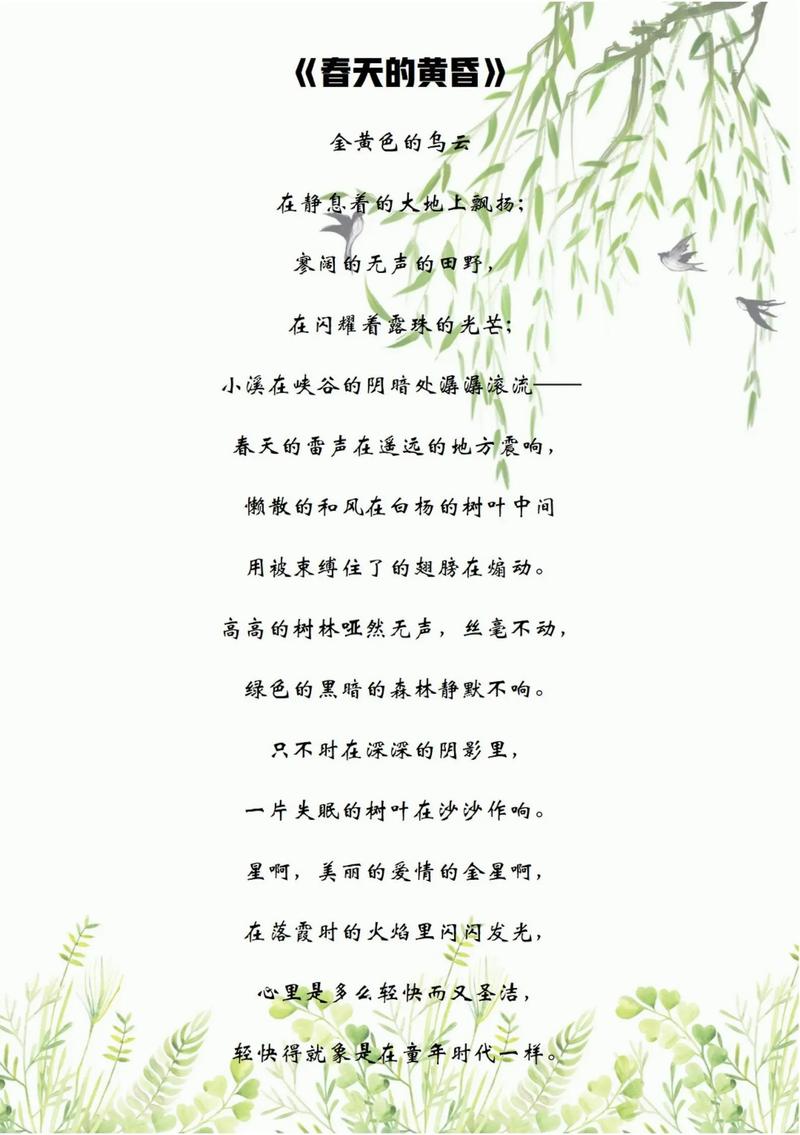 《春天的黄昏》
金黄色的乌云
在静息着的大地上飘扬；
寥阔的无声的田野，
在闪耀着露珠的光芒；
小溪在峡谷的阴暗处潺潺滚流——
春天的雷声在遥远的地方震响，
懒散的和风在白杨的树叶中间
用被束缚住了的翅膀在煽动。
高高的树林哑然无声，丝毫不动，
绿色的黑暗的森林静默不响。
只不时在深深的阴影里，
一片失眠的树叶在沙沙作响。
星啊，美丽的爱情的金星啊，
在落霞时的火焰里闪闪发光，
心里是多么轻快而又圣洁，
轻快得就象是在童年时代一样。